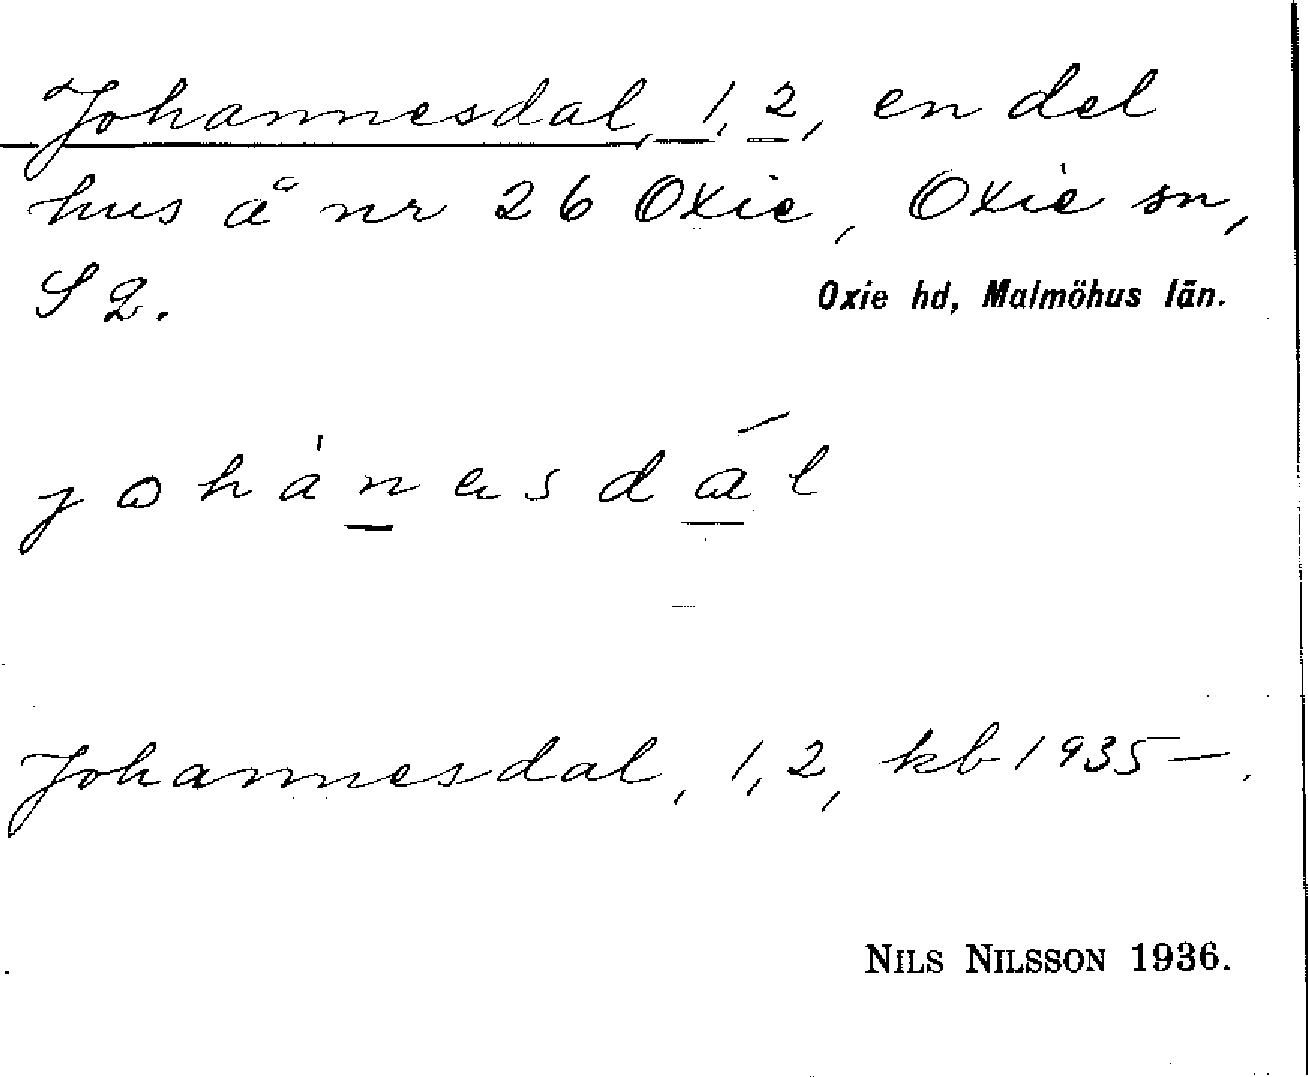 Johannesdal, 1, 2, en del
hus å nr 26 Oxie, Oxie sn,
S 2.
Oxie hd, Malmöhus län.
Johannesdal, 1, 2, kb 1935–.
NILS NILSSON 1936.